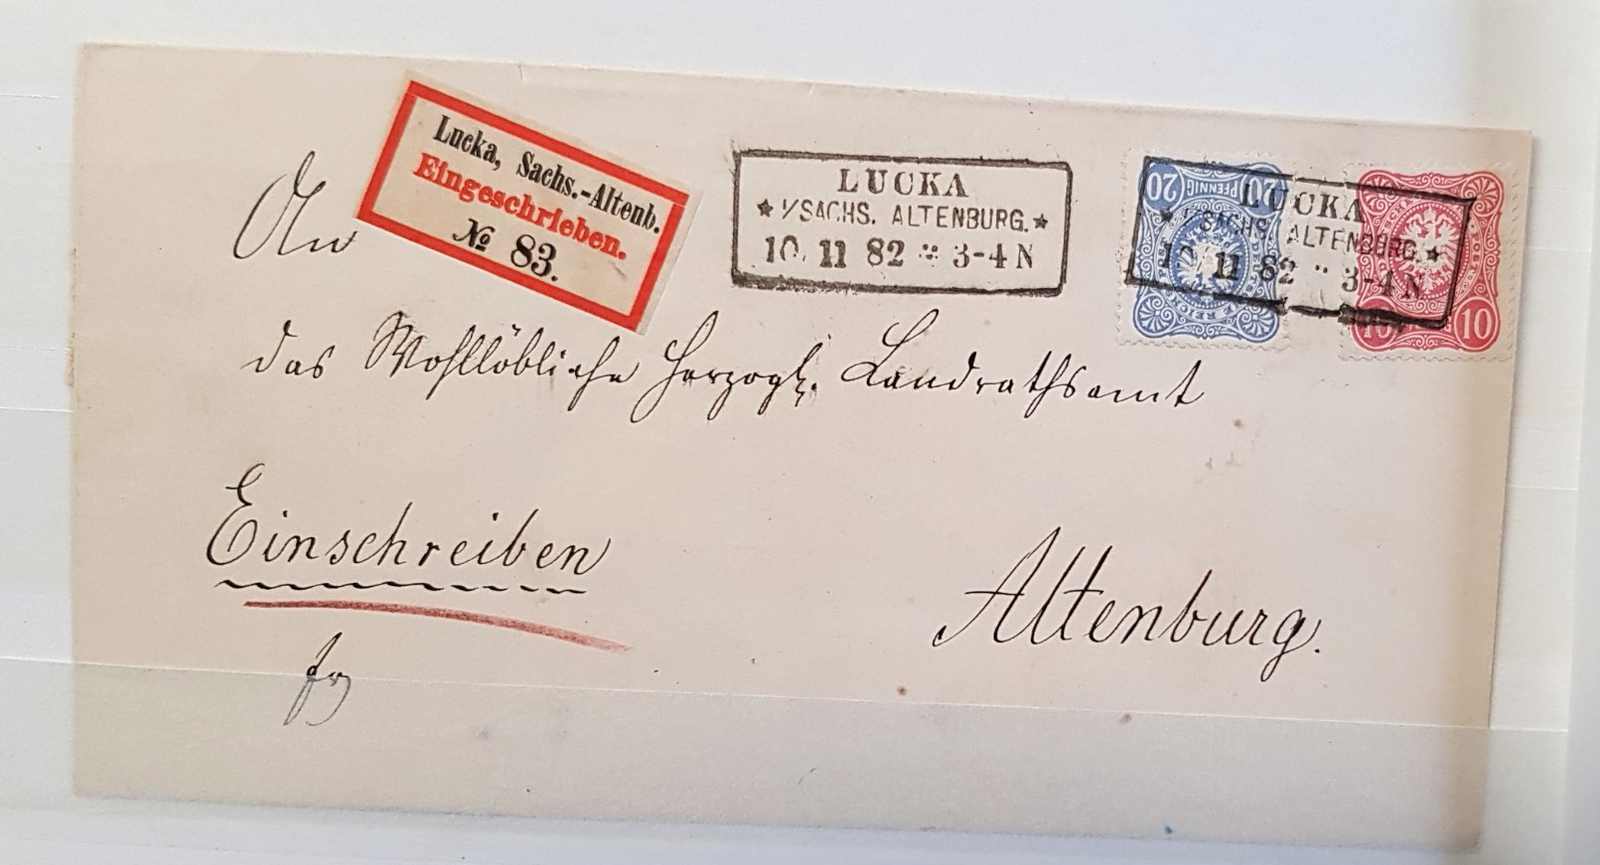 Lucka, Sachs.-Altenb.
Eingeschrieben.
№ 83.
LUCKA
* I/SACHS. ALTENBURG. *
10. 11 82 3-4 N
20 PFENNIG 20
LUCKA
* I/SACHS. ALTENBURG. *
10 11 82 3-4 N
10 10
An
das Wohllöbliche Herzogl. Landrathsamt
Einschreiben
Altenburg.